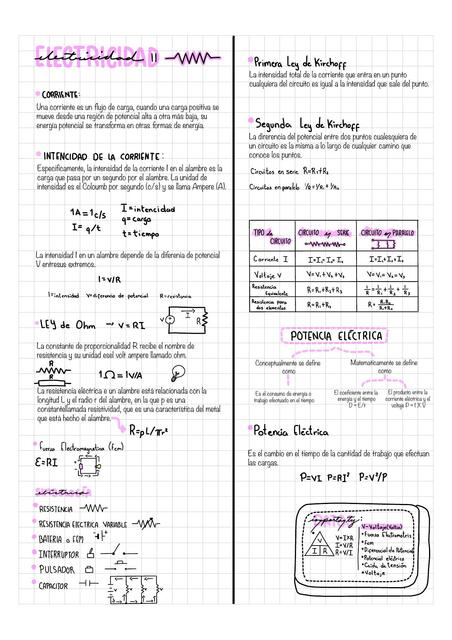 ELECTRICIDAD
electricidad II
CORRIENTE:
Una corriente es un flujo de carga, cuando una carga positiva se
mueve desde una región de potencial alta a otra más baja, su
energía potencial se transforma en otras formas de energía.
INTENCIDAD DE LA CORRIENTE:
Especificamente, la intensidad de la corriente I en el alambre es la
carga que pasa por un segundo por el alambre. La unidad de
intensidad es el Coloumb por segundo (c/s) y se llama Ampere (A).
1A = 1c/s
I = q/t
I = intencidad
q = carga
t = tiempo
La intensidad I en un alambre depende de la diferenia de potencial
V entresus extremos.
I = V/R
I=intensidad V=diferencia de potencial R=resistencia
LEY de Ohm → V = RI
V I R
La constante de proporcionalidad R recibe el nombre de
resistencia y su unidad esel volt ampere llamado ohm.
R
R
1Ω = 1V/A
La resistencia eléctrica e un alambre está relacionada con la
longitud L y el radio r del alambre, en la que p es una
constantellamada resistividad, que es una característica del metal
que está hecho el alambre.
R = ρL/πr²
Fuerza Electromagnetica (fcm)
Ɛ = RI
RESISTENCIA
RESISTENCIA ELECTRICA VARIABLE
BATERIA o FEM
INTERRUPTOR
PULSADOR
CAPACITOR
Primera Ley de Kirchoff
La intensidad total de la corriente que entra en un punto
cualquiera del circuito es igual a la intensidad que sale del punto.
Segunda Ley de Kirchoff
La direrencia del potencial entre dos puntos cualesquiera de
un circuito es la misma a lo largo de cualquier camino que
conoce los puntos.
Circuitos en serie R=R₁+R₂
Circuitos en paralelo 1/R = 1/R₁ + 1/R₂
TIPO de CIRCUITO CIRCUITO en SERIE CIRCUITO en PARALELO
Corriente I I=I₁=I₂=I₃ I=I₁+I₂+I₃
Voltaje V V=V₁+V₂+V₃ V=V₁=V₂=V₃
Resistencia Equivalente R=R₁+R₂+R₃ 1/R = 1/R₁ + 1/R₂ + 1/R₃
Resistencia para dos elementos R=R₁+R₂ R= R₁R₂/R₁+R₂
POTENCIA ELÉCTRICA
Conceptualmente se define
como
Matematicamente se define
como
Es el consumo de energía o
trabajo efectuado en el tiempo
El coeficiente entre la
energía y el tiempo
P = E/t
El producto entre la
corriente eléctrica y el
voltaje P = I X V
Potencia Eléctrica
Es el cambio en el tiempo de la cantidad de trabajo que efectuan
las cargas.
P=VI P=RI² P=V²/P
importante
V
I R
V=IxR
I=V/R
R=V/I
V=Voltaje(Volts)
Fuerza Electrometris
Fcm
Diferencial de Potencial
Potencial eléctrico
Caida de tensión
Voltaje